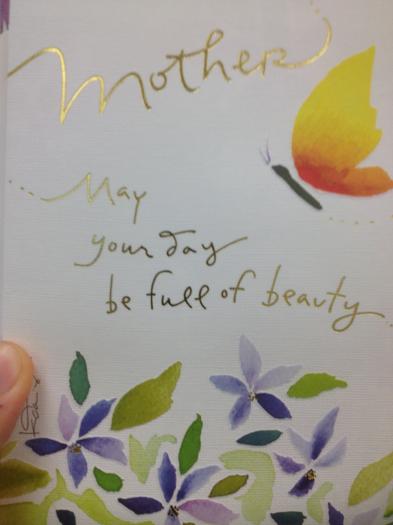 Mother
May
your day
be full of beauty